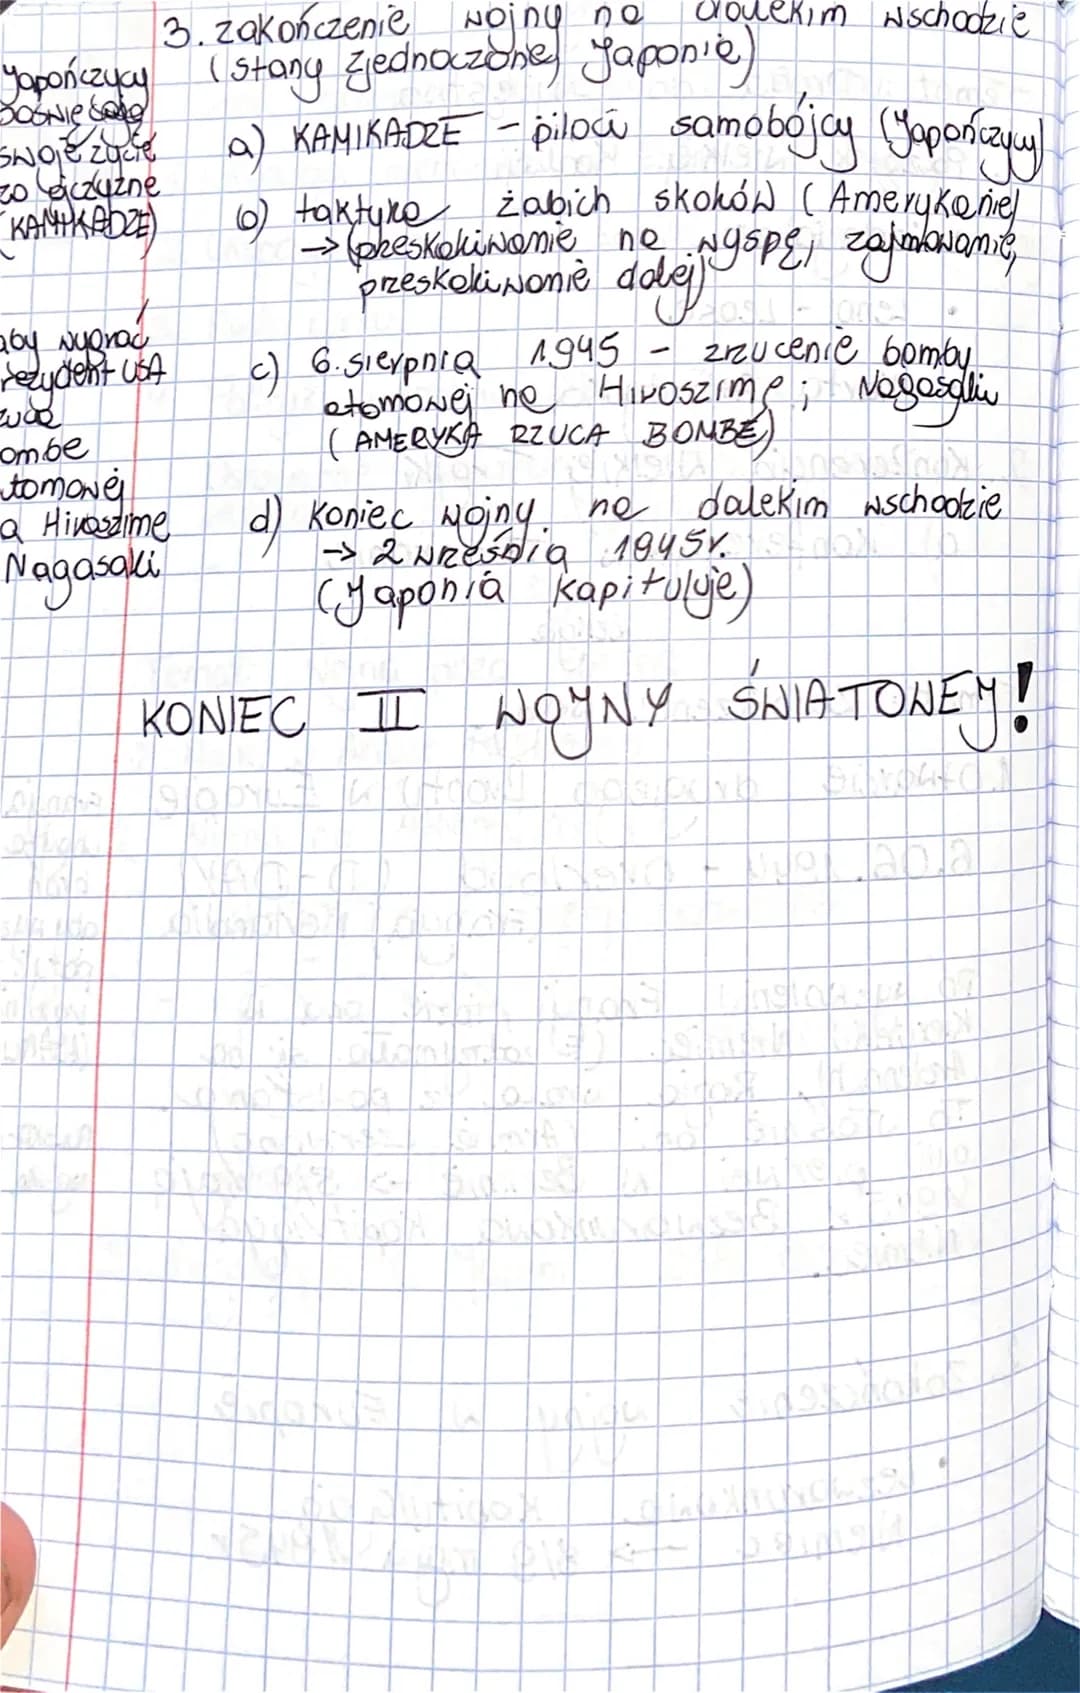 3. zakończenie wojny na dalekim wschodzie
(stany zjednoczone, Japonia)
a) KAMIKADZE - piloci samobójcy (Japończycy)
b) taktyka żabich skoków (Amerykanie)
→ (przeskakiwanie na wyspę, zajmowanie,
przeskakiwanie dalej)
c) 6. sierpnia 1945 - zrzucenie bomby
atomowej na Hiroszimę; Nagasaki
(AMERYKA RZUCA BOMBĘ)
d) Koniec wojny na dalekim wschodzie
→ 2 września 1945r.
(Japonia kapituluje)
KONIEC II WOJNY ŚWIATOWEJ!
Japończycy
poświęcają
swoje życie
za ojczyznę
(KAMIKADZE)
aby wygrać
rezydent USA
ombę
tomowej
a Hiroszimę
Nagasaki